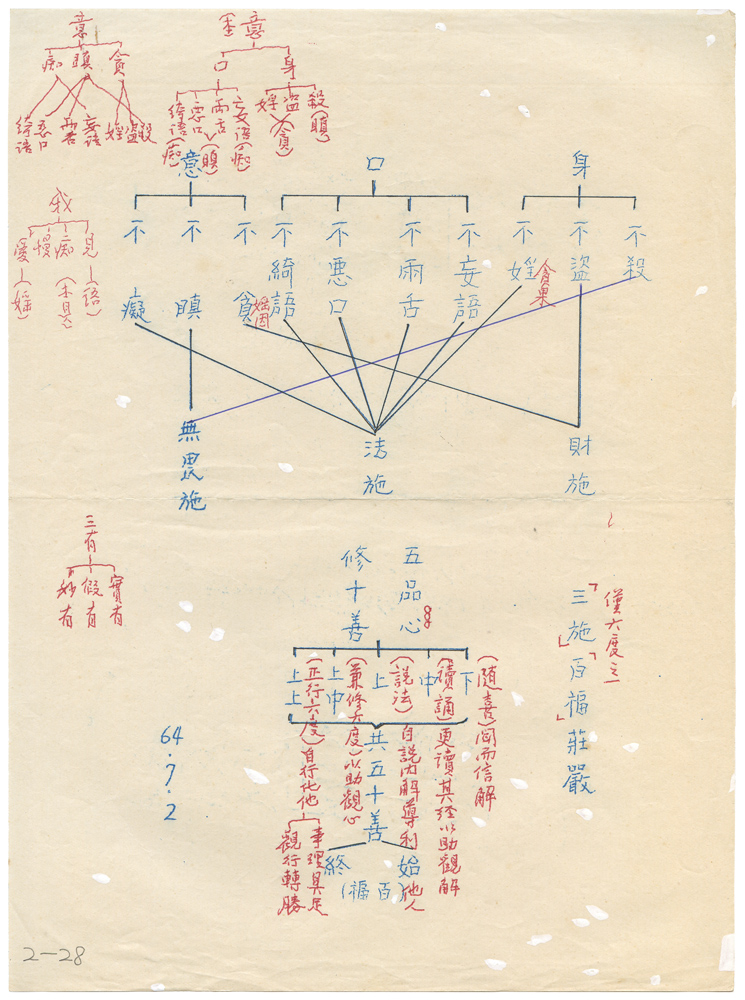 意
貪
瞋
痴
殺
盜
婬
妄語
兩舌
惡口
綺語
意
身
口
殺(瞋)
盜
婬
(貪)
妄語(痴)
兩舌
惡口
(瞋)
綺語(痴)
身
口
意
不殺
不盜
不婬
貪果
不妄語
不兩舌
不惡口
不綺語
不貪
婬因
不瞋
不癡
我
見
痴
慢
愛
(語)
(婬)
財施
法施
無畏施
「三施」「百福」莊嚴
僅六度之一
五品心
修十善
下
中
上
上中
上上
(隨喜)聞而信解
(讀誦)更讀其經以助觀解
(說法)自說內解導利他人
(兼修六度)以助觀心
(正行六度)自行化他
事理具足
觀行轉勝
共五十善
始
終
(百福)
三有
實有
假有
妙有
64.7.2
2-28